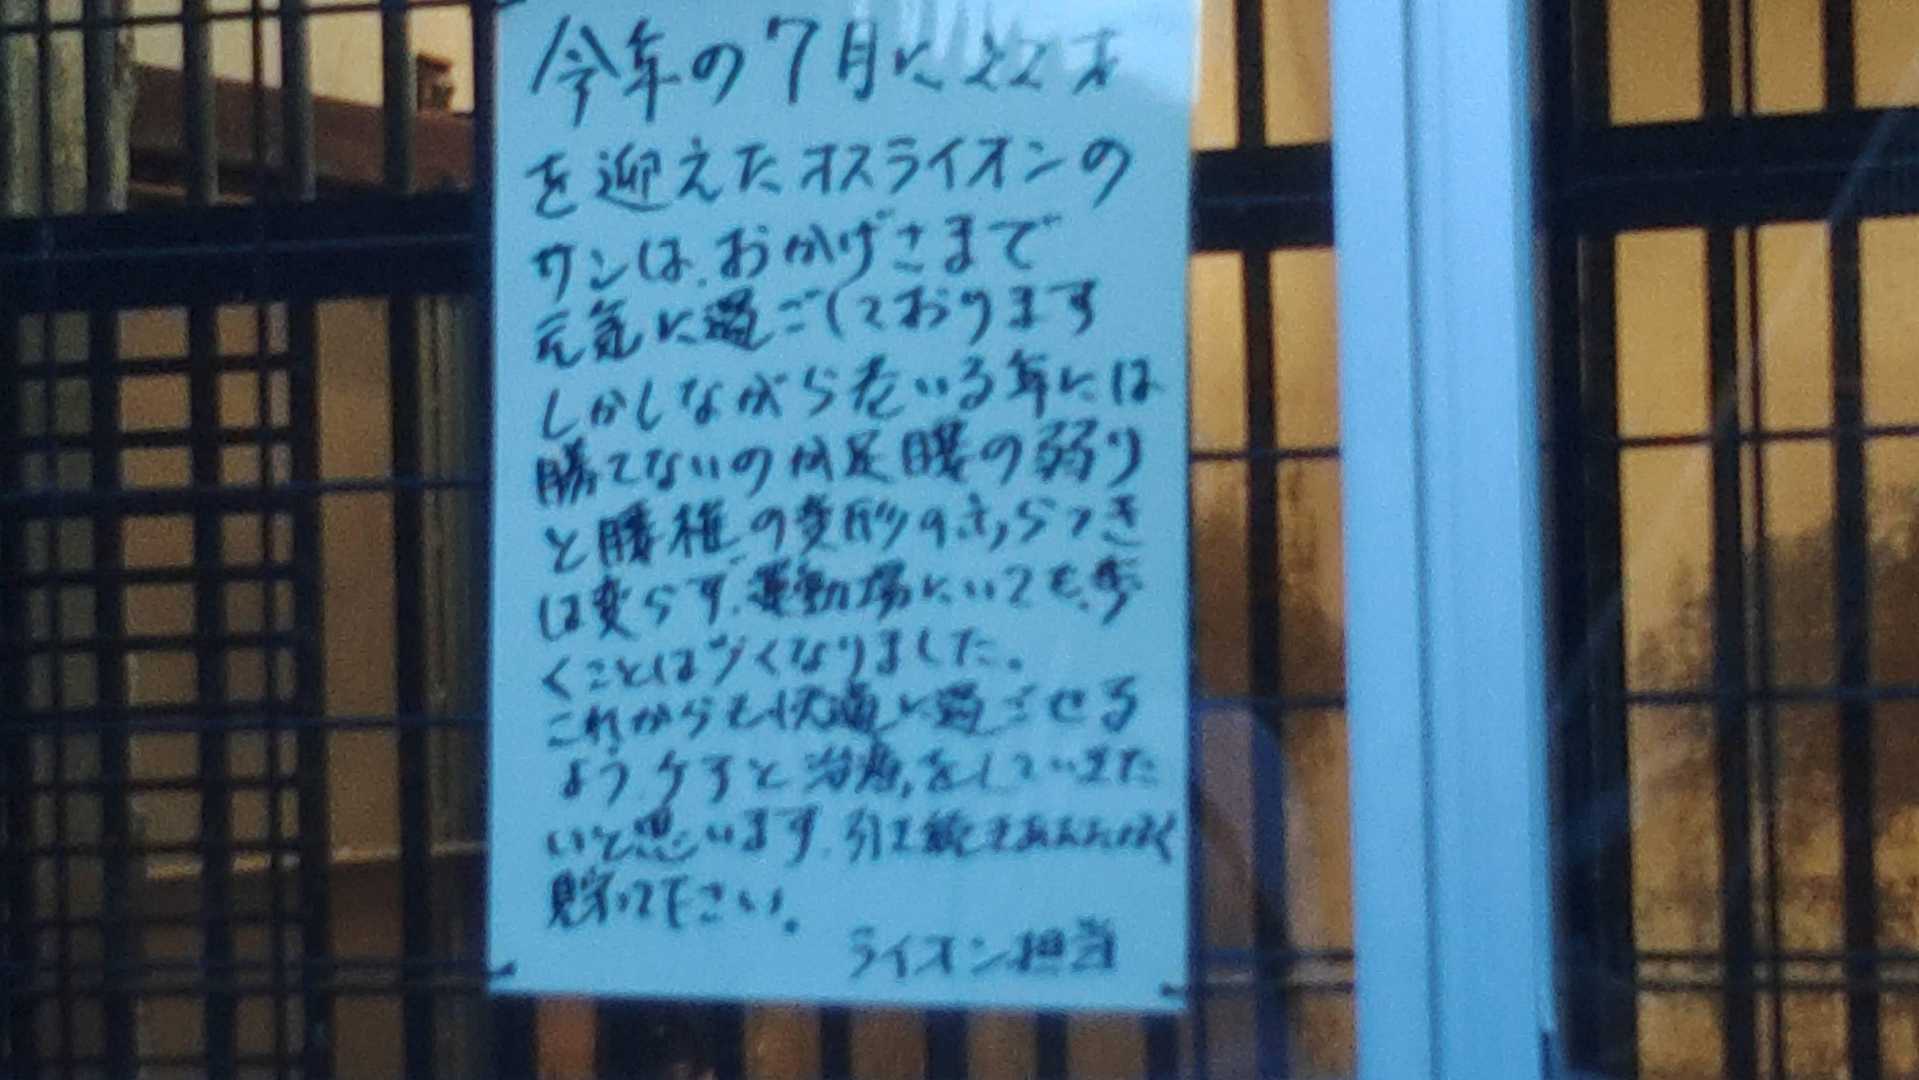 今年の7月に22才
を迎えたオスライオンの
サンは、おかげさまで
元気に過ごしております
しかしながら老いる年には
勝てないのか足腰の弱り
と腰椎の変形のふらつき
は変らず、運動場にいても歩
くことは少くなりました。
これからも快適に過ごせる
ようケアと治療をしていきた
いと思います。引き続きあたたかく
見守って下さい。
ライオン担当